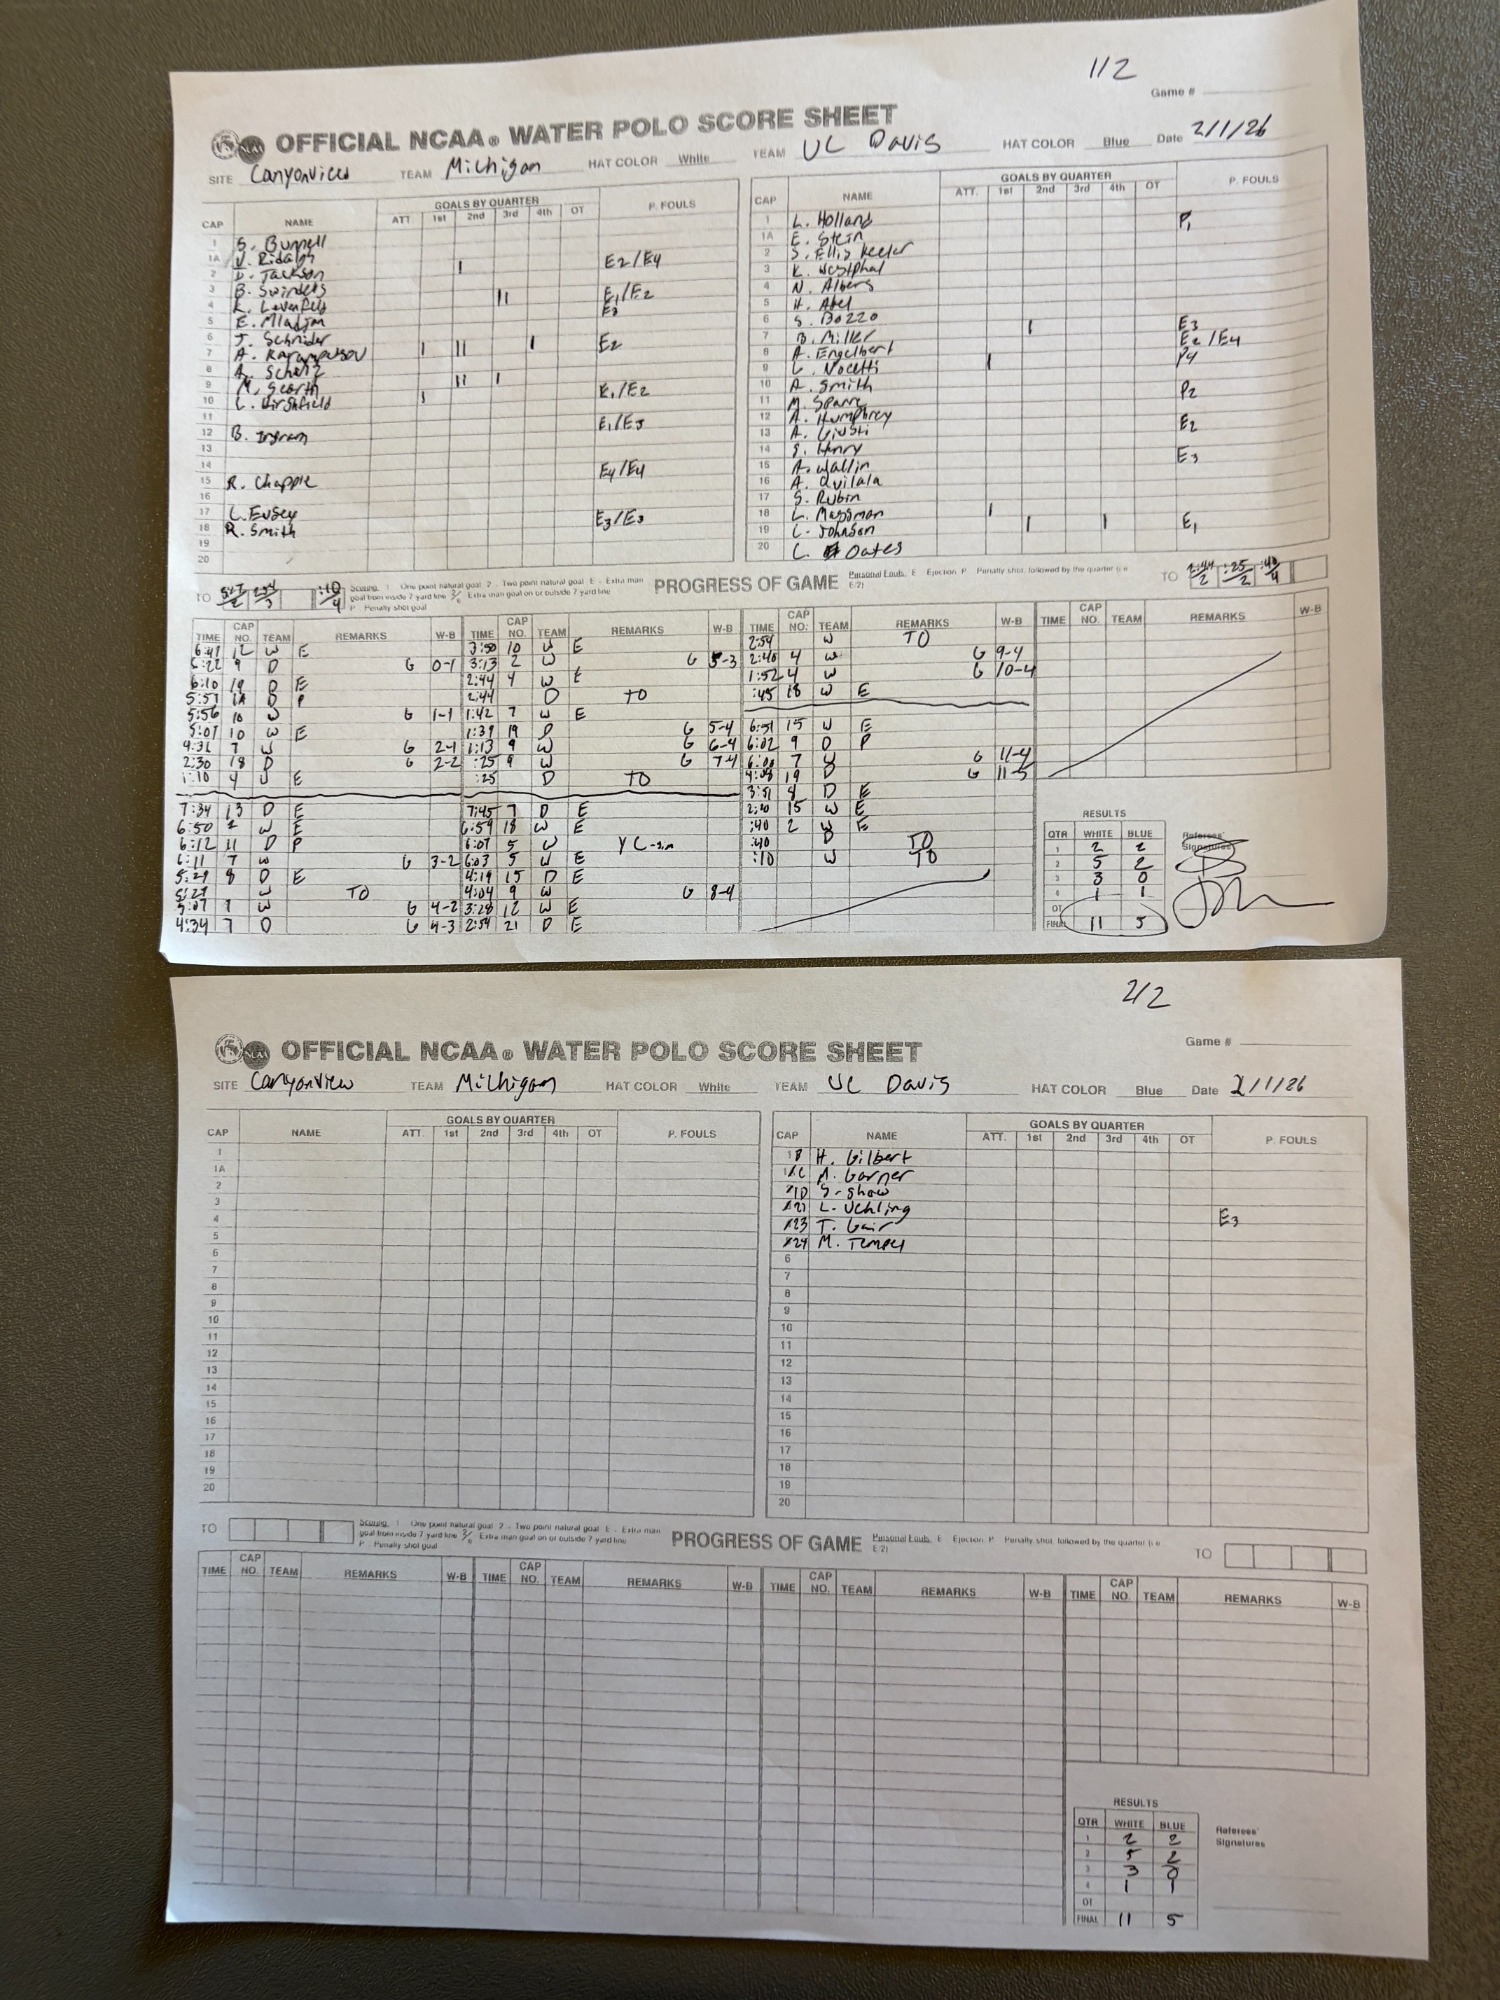 1/2
Game #
OFFICIAL NCAA® WATER POLO SCORE SHEET
SITE Canyonview TEAM Michigan HAT COLOR White TEAM UC Davis HAT COLOR Blue Date 2/1/26
CAP NAME ATT GOALS BY QUARTER 1st 2nd 3rd 4th OT P. FOULS
1 S. Bunnell
1A
2 D. Jackson | E2/E4
3 B. Swinders
4 K. || E1/E2 E3
5 E. Mladjan
6 J. Schnider
7 A. | || | E2
8 A. Scholz
9 M. || |
10 L. Hirshfield | E1/E2
11
12 B. Ingram E1/E3
13
14
15 R. Chapple E4/E4
16
17 L. Eusey
18 R. Smith E3/E3
19
20
CAP NAME ATT. GOALS BY QUARTER 1st 2nd 3rd 4th OT P. FOULS
1 L. Holland P1
1A E. Stein
2 S. Ellis Keeler
3 K. Westphal
4 N. Albers
5 H. Abel
6 S. Bozzo
7 B. Miller | E3
8 A. Engelbert E2/E4
9 L. Nocetti | P4
10 A. Smith
11 M. Sparre P2
12 A. Humphrey
13 A. Giusti E2
14 S. Henry
15 A. Wallin E3
16 A. Quilala
17 S. Rubin
18 L. Maysman |
19 L. Johnson | | E1
20 C. Oates
TO 5:27/2 2:54/3 :10/4
Scoring: 1 - One point natural goal 2 - Two point natural goal E - Extra man goal from inside 7 yard line 2/E Extra man goal on or outside 7 yard line P - Penalty shot goal
PROGRESS OF GAME
Personal Fouls: E - Ejection P - Penalty shot, followed by the quarter (i.e. E/2)
TO 2:44/2 :25/2 :40/4
TIME CAP NO. TEAM REMARKS W-B
6:47 12 W E
6:22 9 D G 0-1
6:10 19 D E
5:57 1A D P
5:56 10 W G 1-1
5:07 10 W E
4:31 7 W G 2-1
2:30 18 D G 2-2
1:10 4 W E
7:34 13 D E
6:50 2 W E
6:12 11 D P
6:11 7 W G 3-2
5:29 8 D E
5:27 W TO
5:07 7 W G 4-2
4:34 7 D G 4-3
TIME CAP NO. TEAM REMARKS W-B
3:50 10 W E
3:13 2 W G 5-3
2:44 4 W E
2:44 D TO
1:42 7 W E
1:39 19 D G 5-4
1:13 9 W G 6-4
:25 9 W G 7-4
:25 D TO
7:45 7 D E
6:59 18 W E
6:07 5 W YC-sim
6:03 5 W E
4:19 15 D E
4:04 9 W G 8-4
3:28 12 W E
2:54 21 D E
TIME CAP NO. TEAM REMARKS W-B
2:54 W TO
2:40 4 W G 9-4
1:52 4 W G 10-4
:45 18 W E
6:51 15 W E
6:02 9 D P
6:00 7 W G 11-4
4:08 19 D G 11-5
3:51 8 D E
2:20 15 W E
:40 2 W E
:40 D TO
:10 W TO
TIME CAP NO. TEAM REMARKS W-B
RESULTS
QTR WHITE BLUE
1 2 2
2 5 2
3 3 0
4 1 1
OT
FINAL 11 5
Referees' Signatures
2/2
Game #
OFFICIAL NCAA® WATER POLO SCORE SHEET
SITE Canyonview TEAM Michigan HAT COLOR White TEAM UC Davis HAT COLOR Blue Date 2/1/26
CAP NAME ATT. GOALS BY QUARTER 1st 2nd 3rd 4th OT P. FOULS
1
1A
2
3
4
5
6
7
8
9
10
11
12
13
14
15
16
17
18
19
20
CAP NAME ATT. GOALS BY QUARTER 1st 2nd 3rd 4th OT P. FOULS
1B H. Gilbert
1C A. Garner
1D S. Show
21 L. Uehling E3
23 T. Gair
24 M. Tempel
6
7
8
9
10
11
12
13
14
15
16
17
18
19
20
TO
Scoring: 1 - One point natural goal 2 - Two point natural goal E - Extra man goal from inside 7 yard line 2/E Extra man goal on or outside 7 yard line P - Penalty shot goal
PROGRESS OF GAME
Personal Fouls: E - Ejection P - Penalty shot, followed by the quarter (i.e. E/2)
TO
TIME CAP NO. TEAM REMARKS W-B TIME CAP NO. TEAM REMARKS W-B TIME CAP NO. TEAM REMARKS W-B TIME CAP NO. TEAM REMARKS W-B
RESULTS
QTR WHITE BLUE
1 2 2
2 5 2
3 3 0
4 1 1
OT
FINAL 11 5
Referees' Signatures